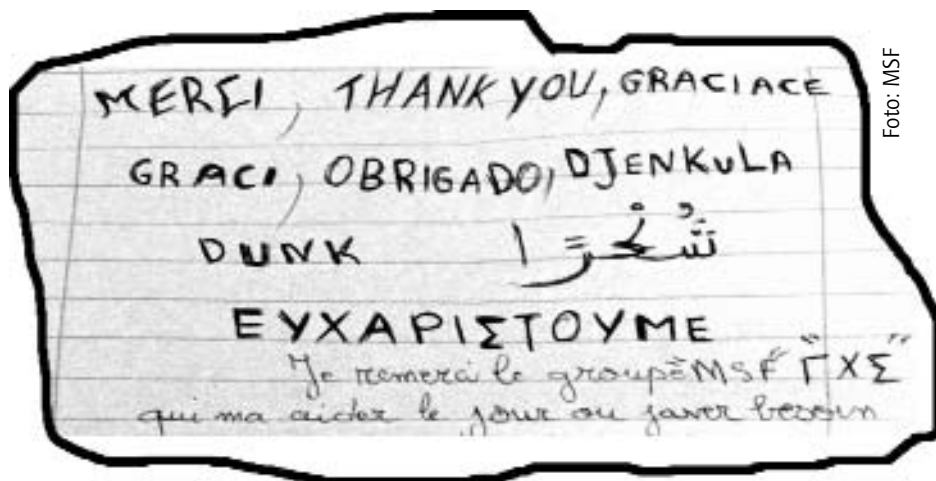 MERΣI, THANK YOU, GRACIACE
GRACI, OBRIGADO, DJENKULA
DUNK شُكْرًا
ΕΥΧΑΡΙΣΤΟΥΜΕ
Je remerci le groupe "MSF" "ΓΧΣ"
qui ma aider le jour ou javer besoin
Foto: MSF